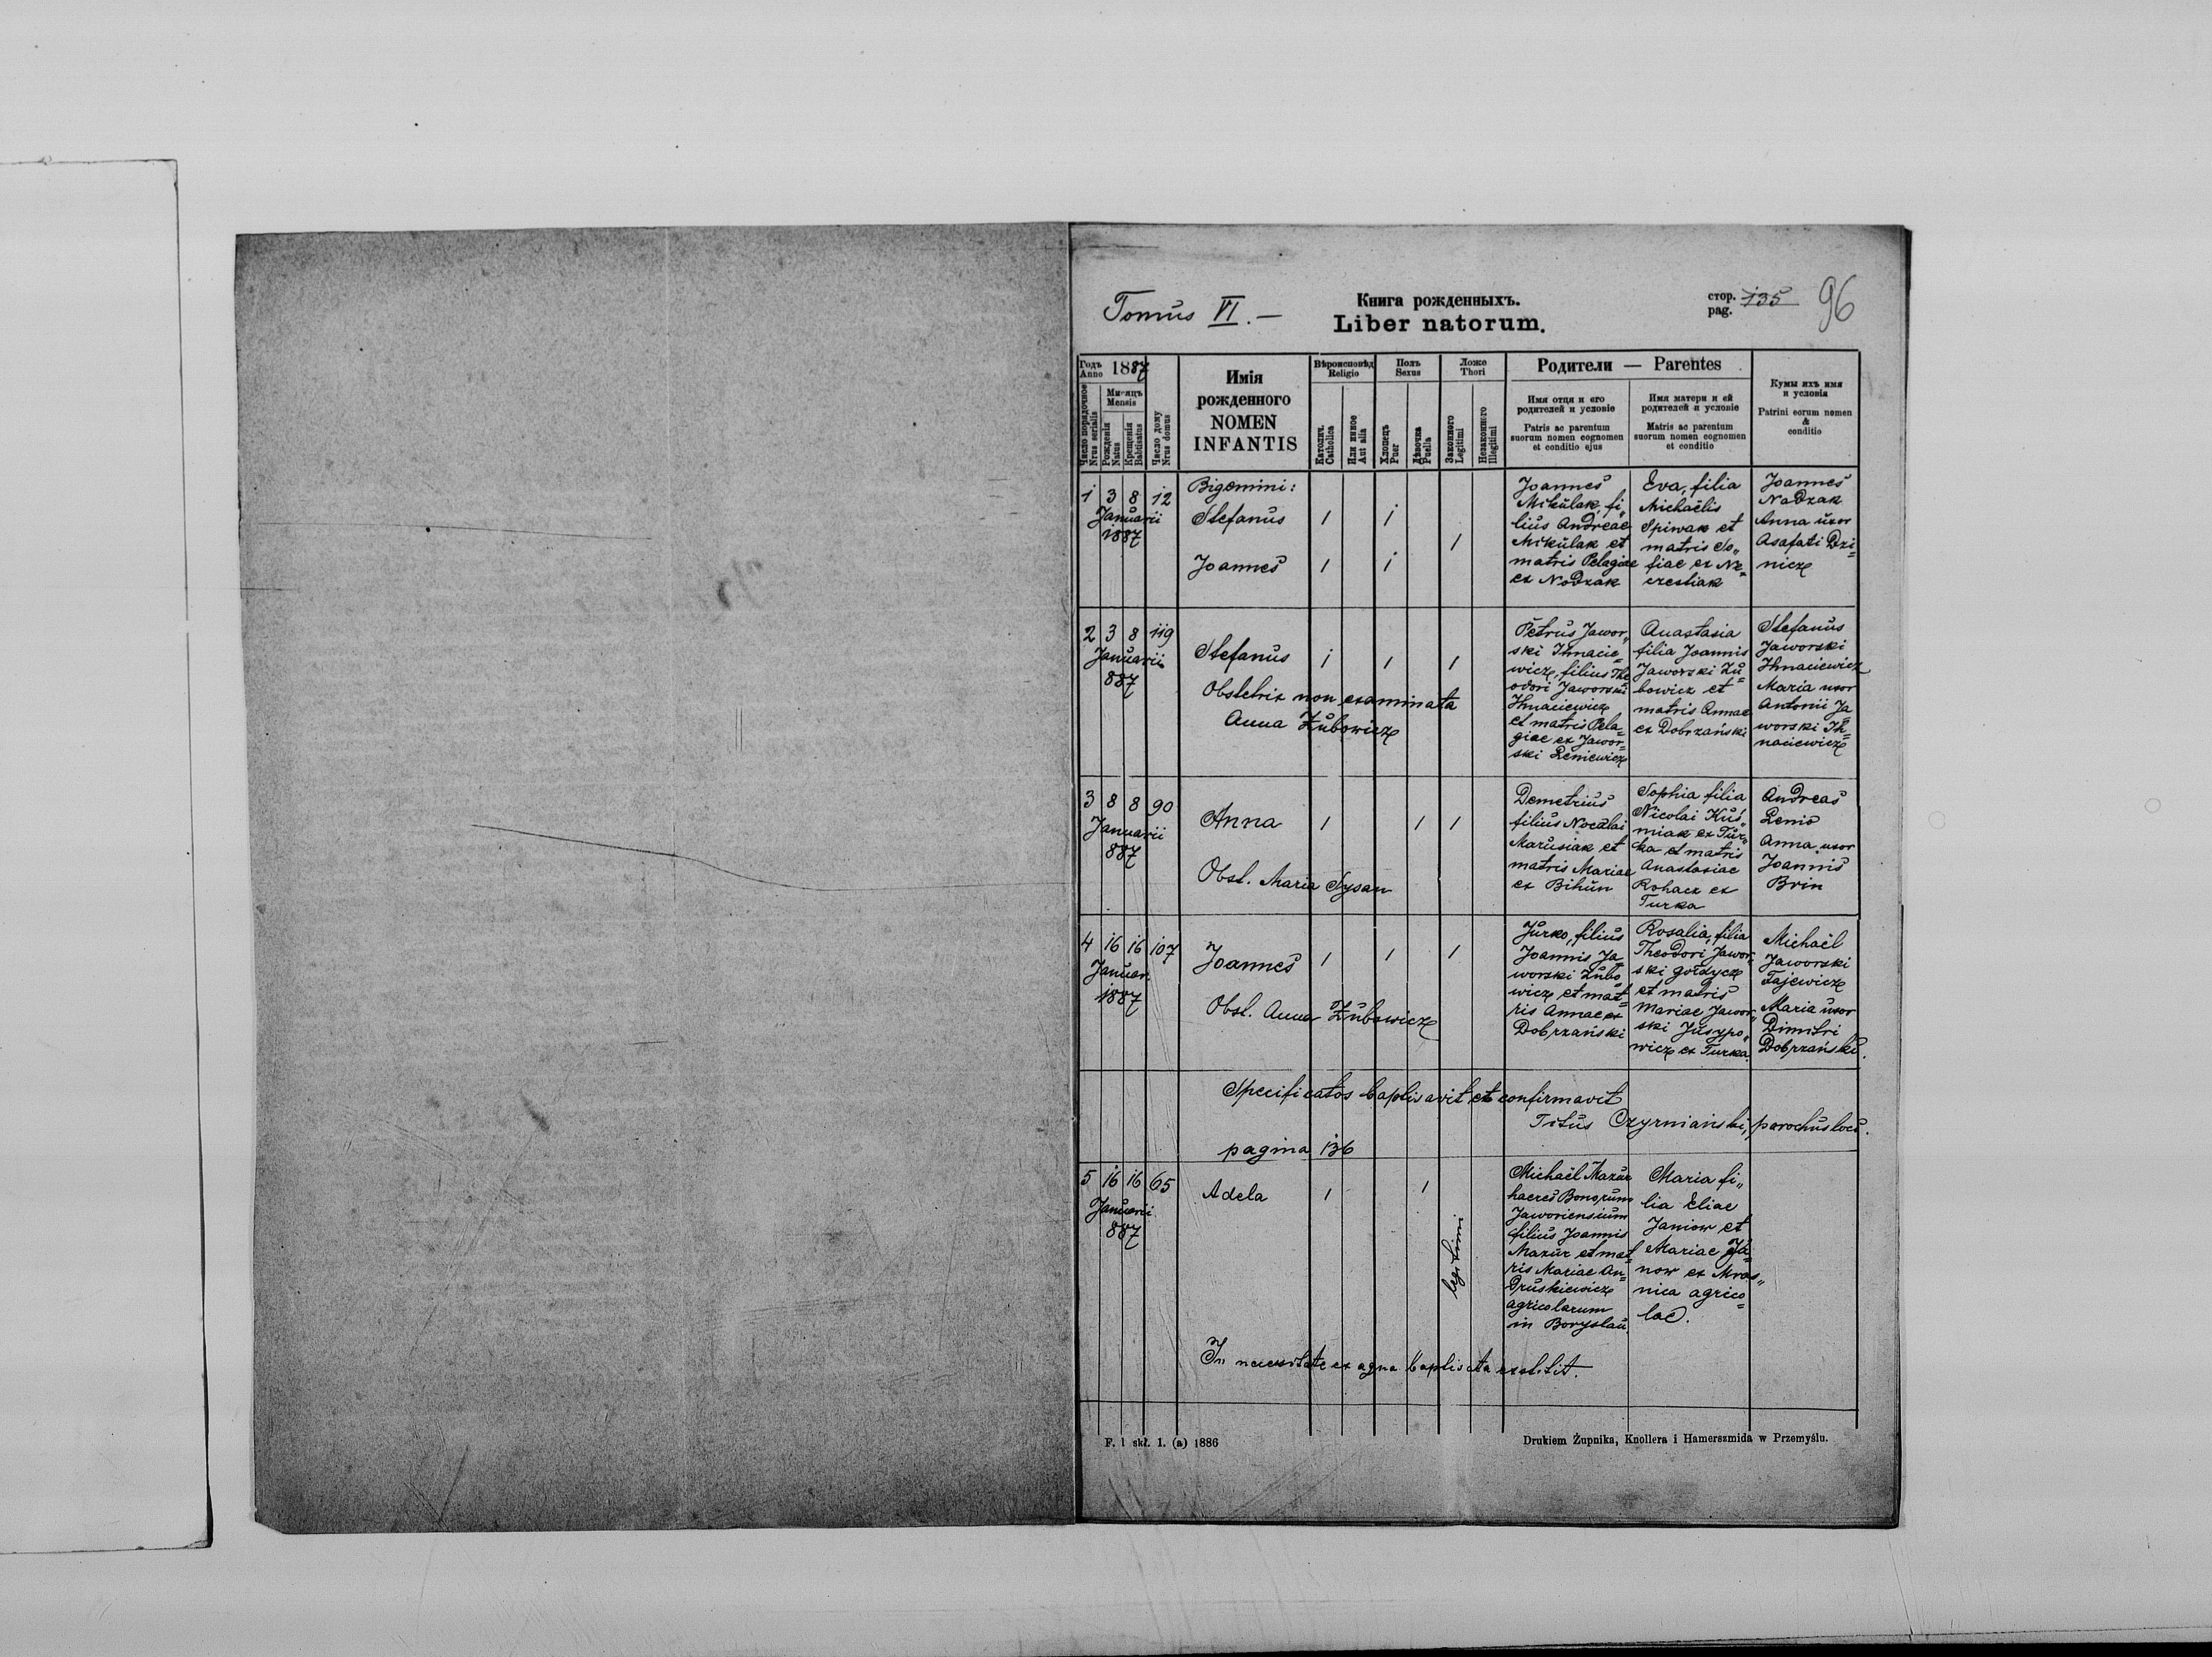 Tomus VI. —
Книга рожденныхъ.
Liber natorum.
стор. 135
pag.
96
Годъ
Anno 1887
Мѣсяцъ
Mensis
Число порядочное
Nrus serialis
Рожденія
Natus
Крещенія
Babtisatus
Число дому
Nrus domus
Имія
рожденного
NOMEN
INFANTIS
Вѣроисповѣд
Religio
Католич.
Catholica
Или инное
Aut alia
Полъ
Sexus
Хлопець
Puer
Дѣвочка
Puella
Ложе
Thori
Законного
Legitimi
Незаконного
Illegitimi
Родители — Parentes
Имя отца и его
родителей и условіе
Patris ac parentum
suorum nomen cognomen
et conditio ejus
Имя матери и ей
родителей и условіе
Matris ac parentum
suorum nomen cognomen
et conditio
Кумы ихъ имя
и условія
Patrini eorum nomen
&
conditio
1 3 8 12
Januarii
1887
Bigemini:
Stefanus 1 1
1
Joannes 1 1
Joannes
Mikulak, fi„
lius Andreae
Mikulak et
matris Pelagiae
ex Nodzak
Eva, filia
Michaëlis
Spiwak et
matris So„
fiae ex Ne=
czestiak
Joannes
Nadzak
Anna uxor
Asafati Dzi=
nicz
2 3 8 119
Januarii
887
Stefanus 1 1 1
Obstetrix non examinata
Anna Zubowicz
Petrus Jawor„
ski Ihnacie=
wicz, filius The
odori Jaworski
Ihnaciewicz
et matris Pela=
giae ex Jawor=
ski Leniewicz
Anastasia
filia Joannis
Jaworski Zu=
bowicz et
matris Annae
ex Dobrzański
Stefanus
Jaworski
Ihnaciewicz
Maria uxor
Antonii Ja
worski Ih=
naciewicz
3 8 8 90
Januarii
887
Anna 1 1 1
Obst. Maria Sysan
Demetrius
filius Nocalai
Marusiak et
matris Mariae
ex Bihun
Sophia filia
Nicolai Kuś„
miak ex Tur„
ka et matris
Anastasiae
Rohacz ex
Turka
Andreas
Lenio
Anna uxor
Joannis
Brin
4 16 16 107
Januar.
1887
Joannes 1 1 1
Obst. Anna Zubowicz
Jurko, filius
Joannis Ja=
worski Zubo
wicz et mat=
ris Annae ex
Dobrzański
Rosalia, filia
Theodori Jawor„
ski Gołdycz
et matris
Mariae Jawor„
ski Jusypo„
wicz ex Turka.
Michaël
Jaworski
Fajewicz
Maria uxor
Dimitri
Dobrzański.
Specificatos baptisavit et confirmavit
Titus Czyrniański, parochus loci.
pagina 136
5 16 16 65
Januarii
887
Adela 1 1
legitimi
Michaël Mazur
haeres Bonorum
Jaworiensium
filius Joannis
Mazur et mat=
ris Mariae An=
druskiewicz
agricolarum
in Boryslau.
Maria fi„
lia Eliae
Janiow et
Mariae Ja=
now ex Mras„
nica agrico=
lae.
In necessitate ex aqua baptisata exstitit.
F. 1 skł. 1. (a) 1886
Drukiem Żupnika, Knollera i Hamerszmida w Przemyślu.